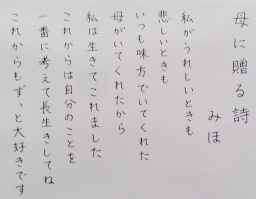 母に贈る詩
みほ
私がうれしいときも
悲しいときも
いつも味方でいてくれた
母がいてくれたから
私は生きてこれました
これからは自分のことを
一番に考えて長生きしてね
これからもずっと大好きです